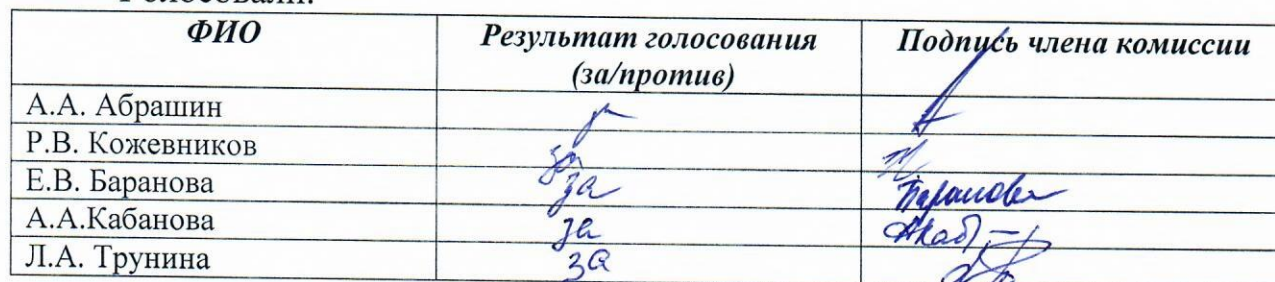 Голосовали:
ФИО Результат голосования Подпись члена комиссии
(за/против)
А.А. Абрашин
Р.В. Кожевников за
Е.В. Баранова за Баранова
А.А.Кабанова за
Л.А. Трунина за